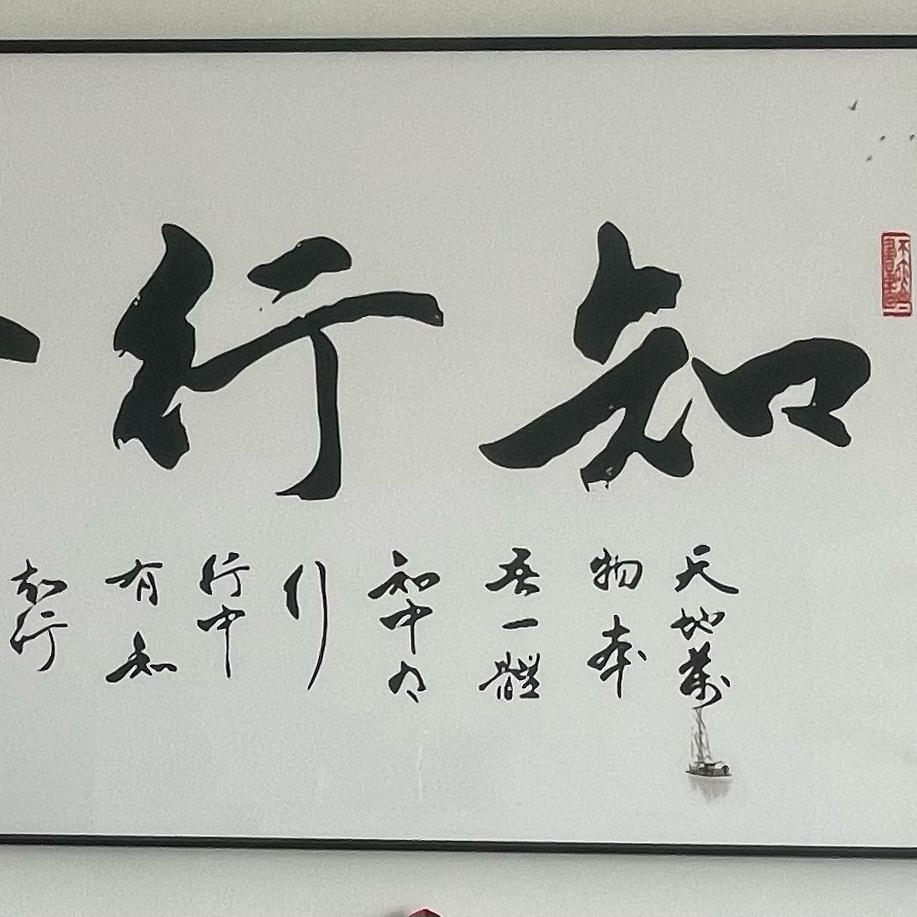 知行
天地萬
物本
吾一體
知中有
行
行中
有知
知行